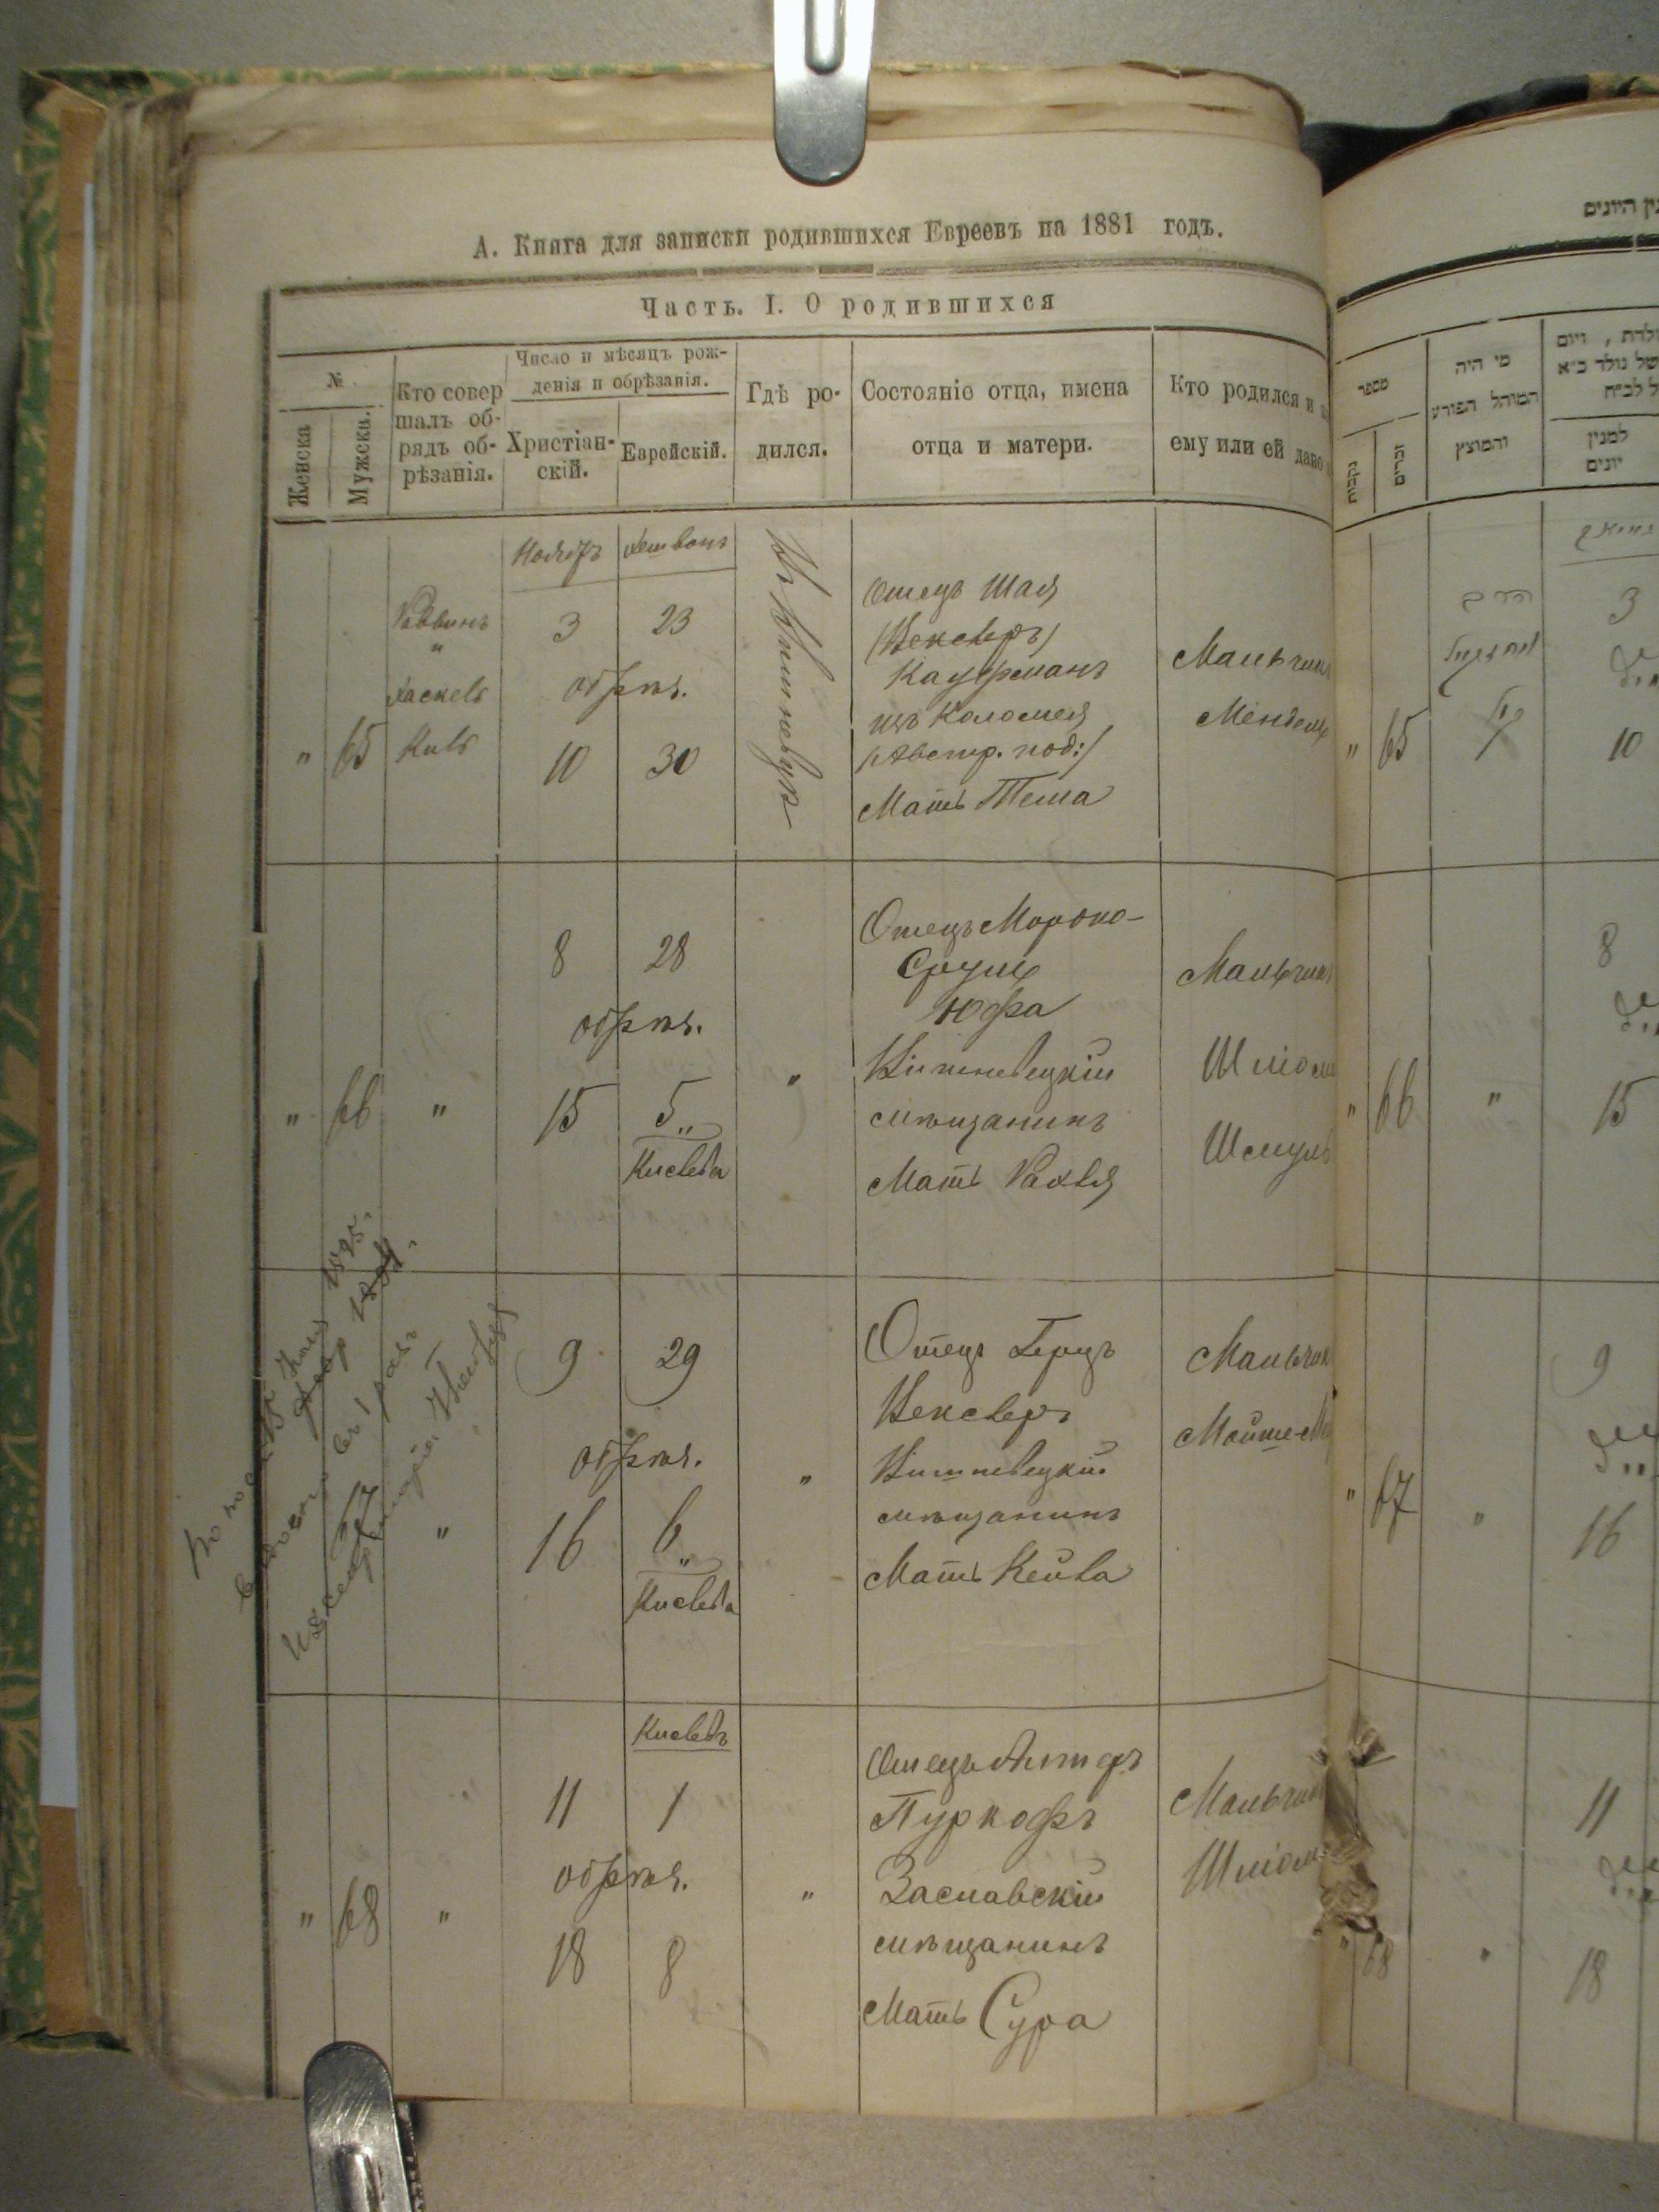 А. Книга для записки родившихся Евреевъ на 1881 годъ.
Часть. I. О родившихся
№
Женска
Мужска.
Кто совер
шалъ об-
рядъ об-
рѣзанія.
Число и мѣсяцъ рож-
денія и обрѣзанія.
Христіан-
скій.
Еврейскій.
Гдѣ ро-
дился.
Состояніе отца, имена
отца и матери.
Кто родился и
ему или ей дано
" 65
Раввинъ
"
Хаскель
Ноябрь Хешвонъ
3 23
обрѣз.
10 30
Отецъ Шая
(Векслеръ)
Кауфманъ
изъ Коломея
(Австр. под:)
Мать Тема
Мальчикъ
Мендель
" 66 "
8 28
обрѣз.
15 5
Кислева
"
Отецъ Мордко-
Сруль
Юфа
Вишневецкій
мѣщанинъ
Мать Рахля
Мальчикъ
Шліома
Шмуль
67 "
9 29
обрѣз.
16 6
Кислева
"
Отецъ Герцъ
Векслеръ
Вишневецкій
мѣщанинъ
Мать Кейла
Мальчик
Мойше-М
" 68 "
Кислевъ
11 1
обрѣз.
18 8
"
Отецъ Алтеръ
Пуркофъ
Заславскій
мѣщанинъ
Мать Сура
Мальчик
Шліом
מספר
נקבות
זכרים
מי היה
המוהל הפורע
והמוצץ
למנין
יונים
" 65
3
10
" 66 "
8
15
" 67 "
9
16
" 68 "
11
18